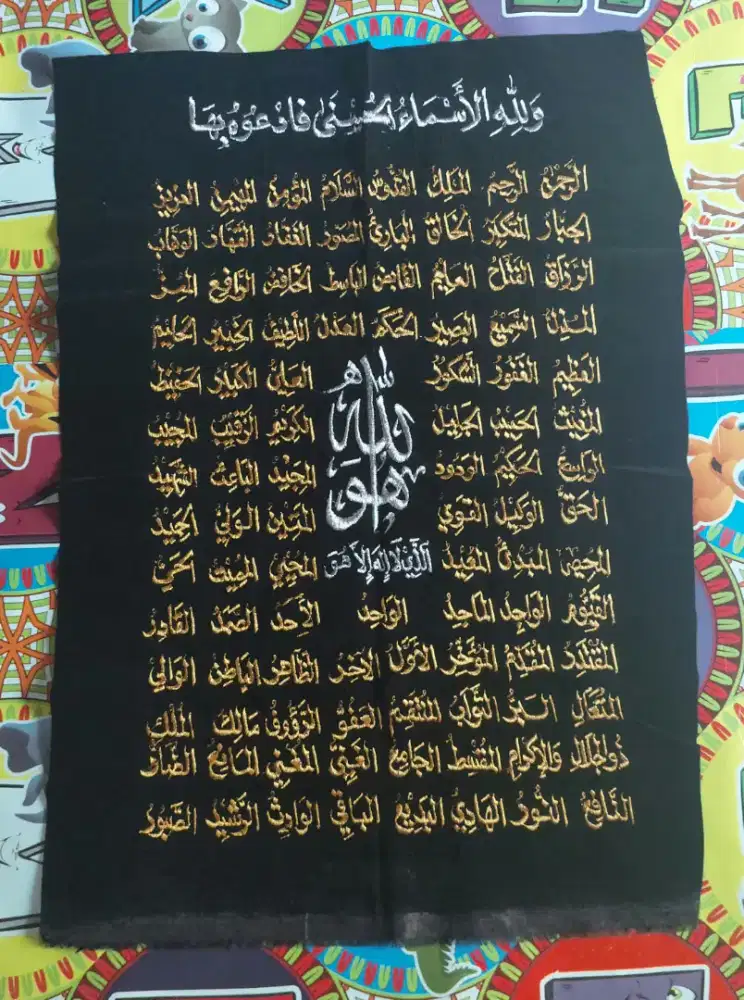 وَلِلّٰهِ الأَسْمَاءُ الْحُسْنَىٰ فَادْعُوهُ بِهَا
الرحمن الرحيم الملك القدوس السلام المؤمن المهيمن العزيز
الجبار المتكبر الخالق البارئ المصور الغفار القهار الوهاب
الرزاق الفتاح العليم القابض الباسط الخافض الرافع المعز
المذل السميع البصير الحكم العدل اللطيف الخبير الحليم
العظيم الغفور الشكور العلي الكبير الحفيظ
المقيت الحسيب الجليل الكريم الرقيب المجيب
الواسع الحكيم الودود المجيد الباعث الشهيد
الحق الوكيل القوي المتين الولي الحميد
هو الله
المحصي المبدئ المعيد الذي لا إله إلا هو المحيي المميت الحي
القيوم الواجد الماجد الواحد الأحد الصمد القادر
المقتدر المقدم المؤخر الأول الآخر الظاهر الباطن الوالي
المتعال البر التواب المنتقم العفو الرؤوف مالك الملك
ذوالجلال والإكرام المقسط الجامع الغني المغني المانع الضار
النافع النور الهادي البديع الباقي الوارث الرشيد الصبور